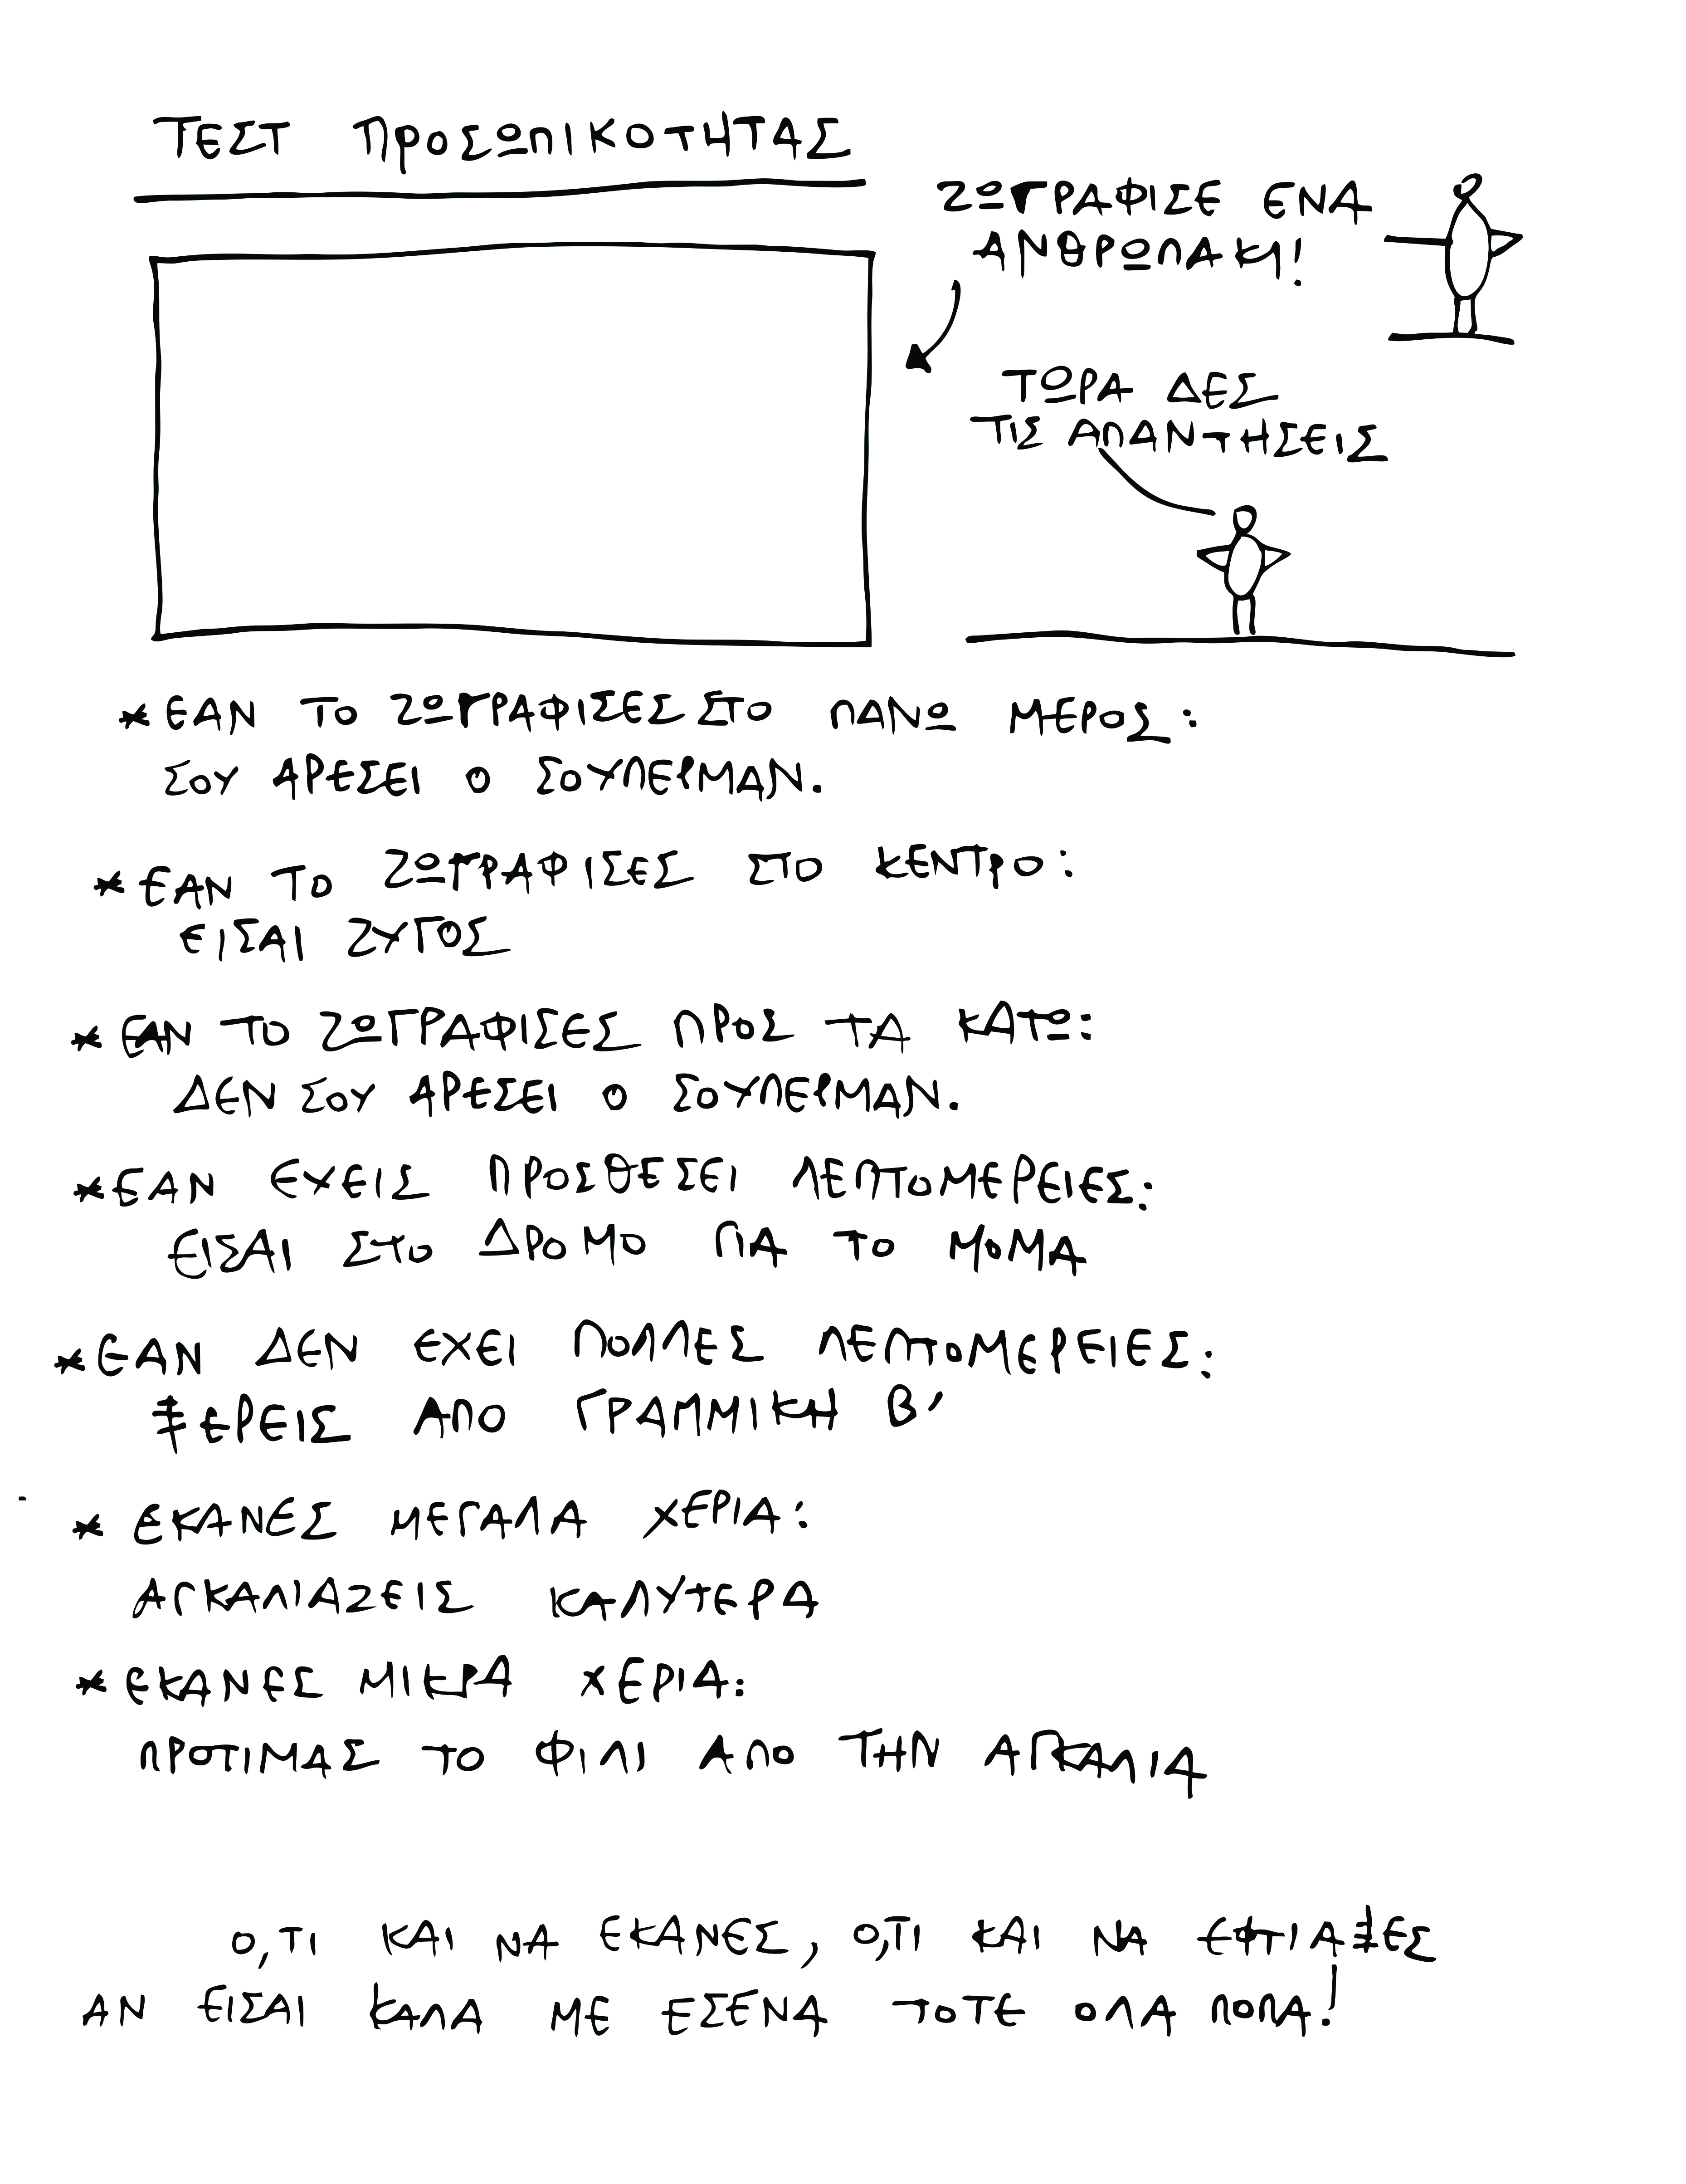 ΤΕΣΤ ΠΡΟΣΩΠΙΚΟΤΗΤΑΣ
ΖΩΓΡΑΦΙΣΕ ΕΝΑ
ΑΝΘΡΩΠΑΚΙ!
ΤΩΡΑ ΔΕΣ
ΤΙΣ ΑΠΑΝΤΗΣΕΙΣ
* ΕΑΝ ΤΟ ΖΩΓΡΑΦΙΣΕΣ ΣΤΟ ΠΑΝΩ ΜΕΡΟΣ:
ΣΟΥ ΑΡΕΣΕΙ Ο ΣΟΥΠΕΡΜΑΝ.
* ΕΑΝ ΤΟ ΖΩΓΡΑΦΙΣΕΣ ΣΤΟ ΚΕΝΤΡΟ:
ΕΙΣΑΙ ΖΥΓΟΣ
* ΕΑΝ ΤΟ ΖΩΓΡΑΦΙΣΕΣ ΠΡΟΣ ΤΑ ΚΑΤΩ:
ΔΕΝ ΣΟΥ ΑΡΕΣΕΙ Ο ΣΟΥΠΕΡΜΑΝ.
* ΕΑΝ ΕΧΕΙΣ ΠΡΟΣΘΕΣΕΙ ΛΕΠΤΟΜΕΡΕΙΕΣ:
ΕΙΣΑΙ ΣΤΟ ΔΡΟΜΟ ΓΙΑ ΤΟ ΜΟΜΑ
* ΕΑΝ ΔΕΝ ΕΧΕΙ ΠΟΛΛΕΣ ΛΕΠΤΟΜΕΡΕΙΕΣ:
ΞΕΡΕΙΣ ΑΠΟ ΓΡΑΜΜΙΚΗ Β'
* ΕΚΑΝΕΣ ΜΕΓΑΛΑ ΧΕΡΙΑ:
ΑΓΚΑΛΙΑΖΕΙΣ ΚΑΛΥΤΕΡΑ
* ΕΚΑΝΕΣ ΜΙΚΡΑ ΧΕΡΙΑ:
ΠΡΟΤΙΜΑΣ ΤΟ ΦΙΛΙ ΑΠΟ ΤΗΝ ΑΓΚΑΛΙΑ
Ο,ΤΙ ΚΑΙ ΝΑ ΕΚΑΝΕΣ, Ο,ΤΙ ΚΑΙ ΝΑ ΕΦΤΙΑΞΕΣ
ΑΝ ΕΙΣΑΙ ΚΑΛΑ ΜΕ ΕΣΕΝΑ ΤΟΤΕ ΟΛΑ ΠΟΠΑ!